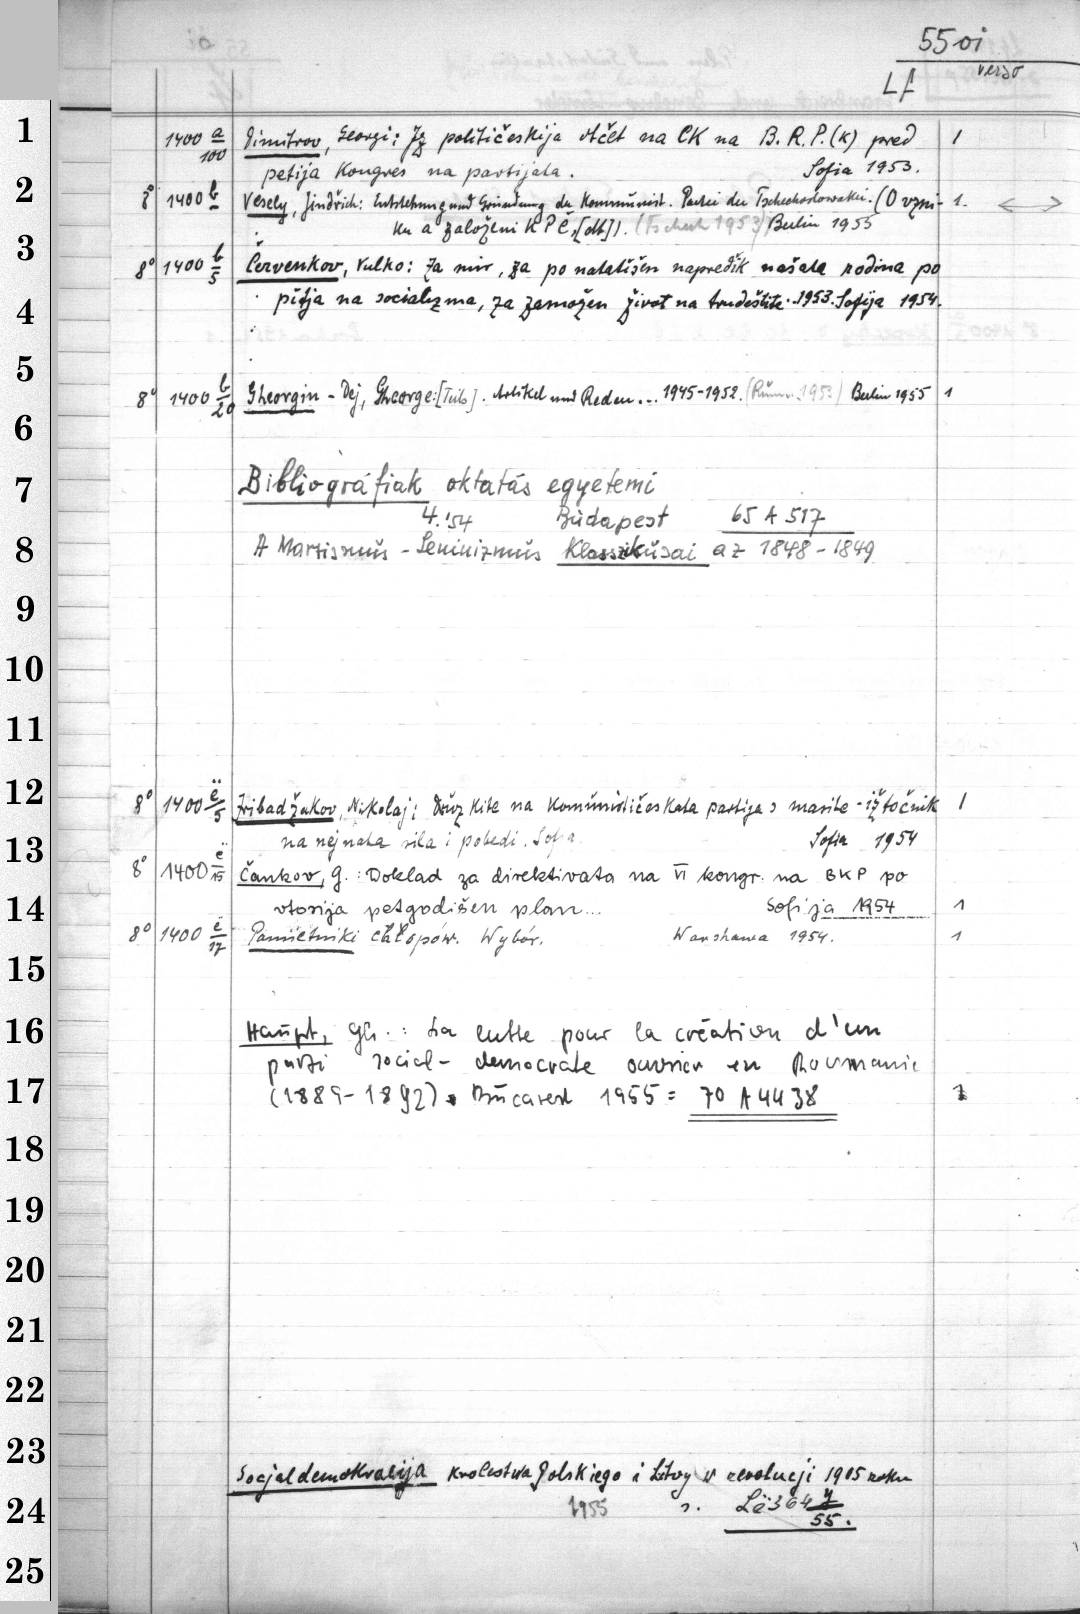 55 oi
Lf verso
1 1400 a/100 Dimitrov, Georgi: Iz političeskija otčet na CK na B. R. P. (K) pred 1
petija Kongres na partijata. Sofia 1953.
2 8° 1400 b Vesely, Jindřich: Entstehung und Gründung der Kommunist. Partei der Tschechoslowakei. (O vzni- 1.
ku a založeni KPČ, [dt]). (Tschech 1953) Berlin 1955
3 8° 1400 b/5 Červenkov, Vulko: Za mir, za po natatišen napredŭk našata rodina po
4 pŭtja na socializma, za zamožen život na trudeštite. 1953. Sofija 1954.
5
6 8° 1400 b/20 Gheorgiu-Dej, Gheorge: [Teils]. Artikel und Reden... 1945-1952. (Rŭmän. 1953) Berlin 1955 1
7 Bibliográfiák oktatás egyetemi
4.'54 Budapest 65 A 517
8 A Marxismus-Leninizmus Klasszikusai az 1848-1849
9
10
11
12 8° 1400 ë/5 Zribadžakov, Nikolaj: Vrŭzkite na Komunističeskata partija s masite - iztočnik 1
13 na nejnata sila i pobedi. Sofia. Sofia 1954
8° 1400 ë/15 Čankov, G.: Doklad za direktivata na VI kongr. na BKP po
14 vtorija petgodišen plan... Sofija 1954 1
8° 1400 ë/17 Pamiętniki chłopów. Wybór. Warshawa 1954. 1
15
16 Haupt, Gh.: La lutte pour la création d'un
parti social-democrate ouvrier en Roumanie
17 (1889-1892). Bucarest 1955 = 70 A 4438 1
18
19
20
21
22
23 Socjaldemokracija Krolestwa Polskiego i Litwy w rewolucji 1905 roku
24 1955 s. Lë 364 y/55.
25